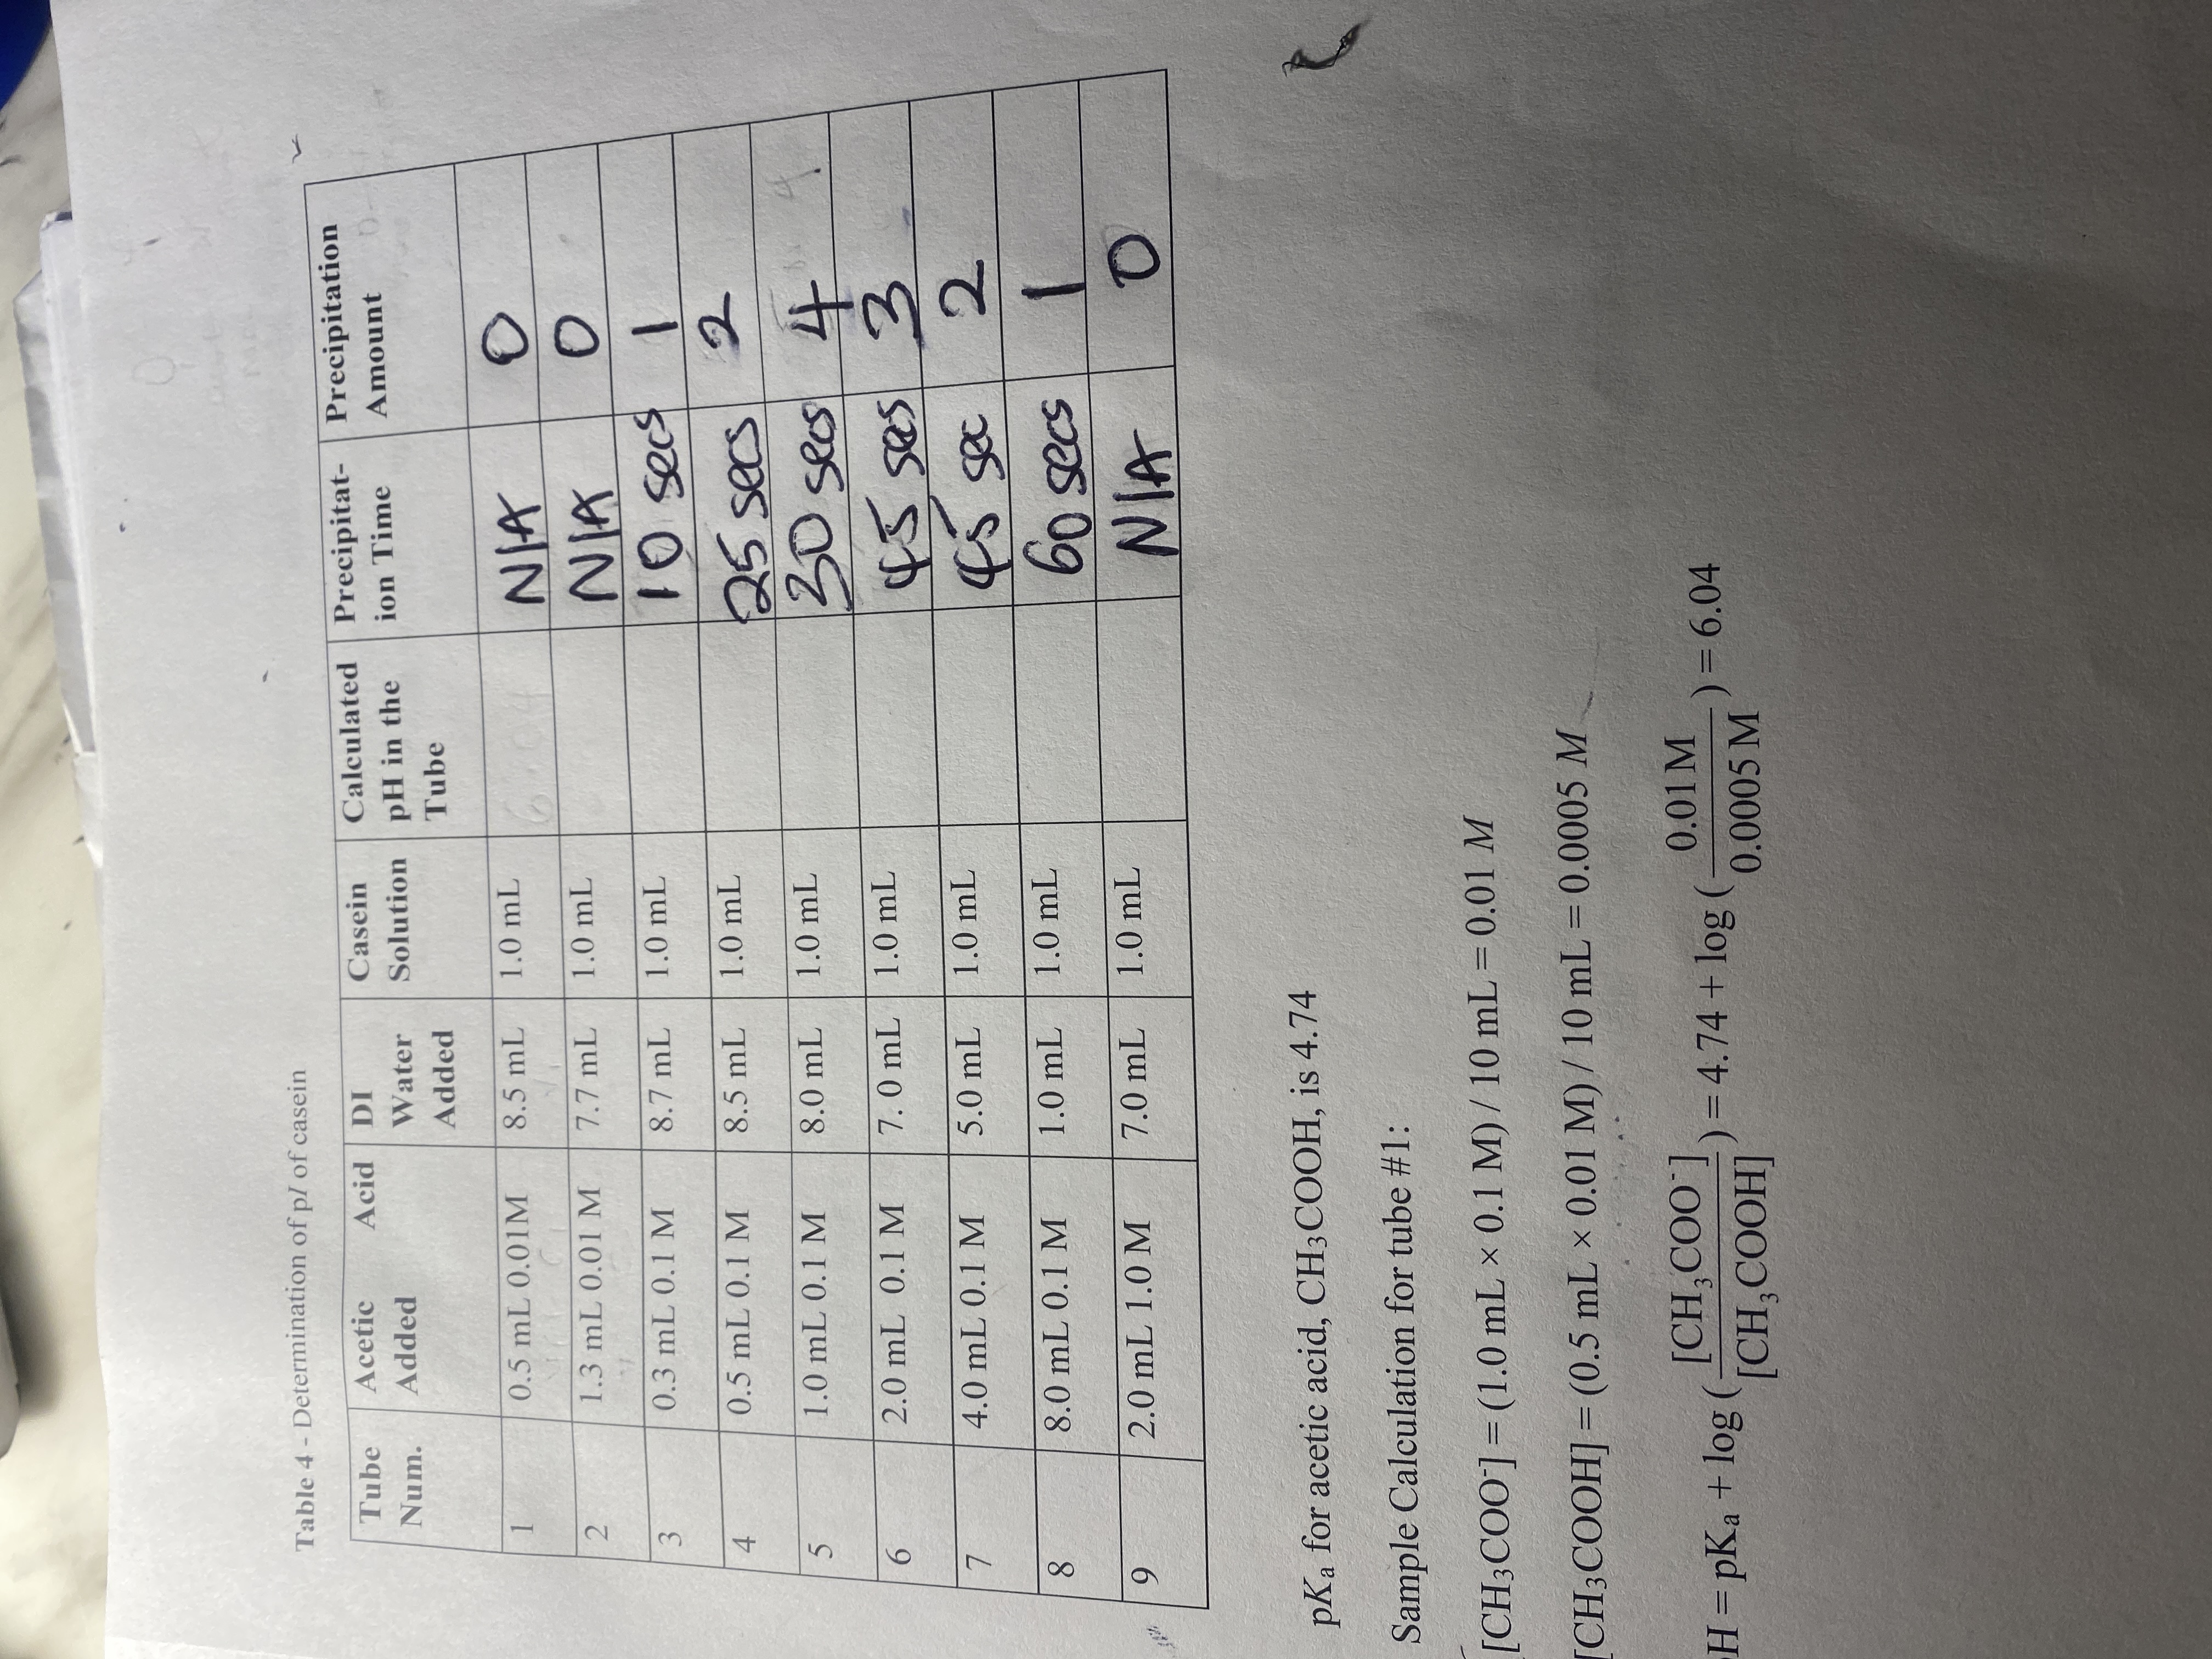 Table 4 - Determination of pI of casein
Tube Num. Acetic Acid Added DI Water Added Casein Solution Calculated pH in the Tube Precipitat-ion Time Precipitation Amount
1 0.5 mL 0.01M 8.5 mL 1.0 mL 6.04 N/A 0
2 1.3 mL 0.01 M 7.7 mL 1.0 mL N/A 0
3 0.3 mL 0.1 M 8.7 mL 1.0 mL 10 secs 1
4 0.5 mL 0.1 M 8.5 mL 1.0 mL 25 secs 2
5 1.0 mL 0.1 M 8.0 mL 1.0 mL 30 secs 4
6 2.0 mL 0.1 M 7.0 mL 1.0 mL 45 secs 3
7 4.0 mL 0.1 M 5.0 mL 1.0 mL 45 sec 2
8 8.0 mL 0.1 M 1.0 mL 1.0 mL 60 secs 1
9 2.0 mL 1.0 M 7.0 mL 1.0 mL N/A 0
pKa for acetic acid, CH₃COOH, is 4.74
Sample Calculation for tube #1:
[CH₃COO⁻] = (1.0 mL × 0.1 M) / 10 mL = 0.01 M
[CH₃COOH] = (0.5 mL × 0.01 M) / 10 mL = 0.0005 M
H = pKa + log ( [CH₃COO⁻] / [CH₃COOH] ) = 4.74 + log ( 0.01M / 0.0005M ) = 6.04